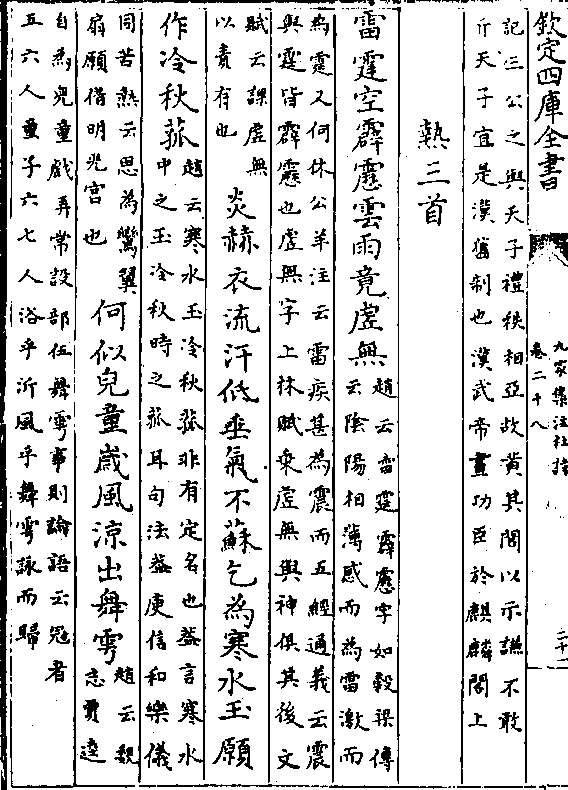 欽定四庫全書
九家集注杜詩
卷二十八
二十一
記三公之與天子禮秩相亞故黃其閣以示謙不敢
斤天子宜是漢舊制也漢武帝畫功臣於麒麟閣上
熱三首
雷霆空霹靂雲雨竟虛無趙云雷霆霹靂字如穀梁傳
云陰陽相薄感而為雷激而
為霆又何休公羊注云雷疾甚為震而五經通義云震
與霆皆霹靂也虛無字上林賦乘虛無與神俱其後文
賦云課虛無
以責有也
炎赫衣流汗低垂氣不蘇乞為寒水玉願
作冷秋菰趙云寒水玉冷秋菰非有定名也蓋言寒水
中之玉冷秋時之菰耳句法蓋庾信和樂儀
同苦熱云思為鸞翼
扇願借明光宮也
何似兒童歲風涼出舞雩趙云魏
志賈逵
自為兒童戲弄常設部伍舞雩事則論語云冠者
五六人童子六七人浴乎沂風乎舞雩詠而歸